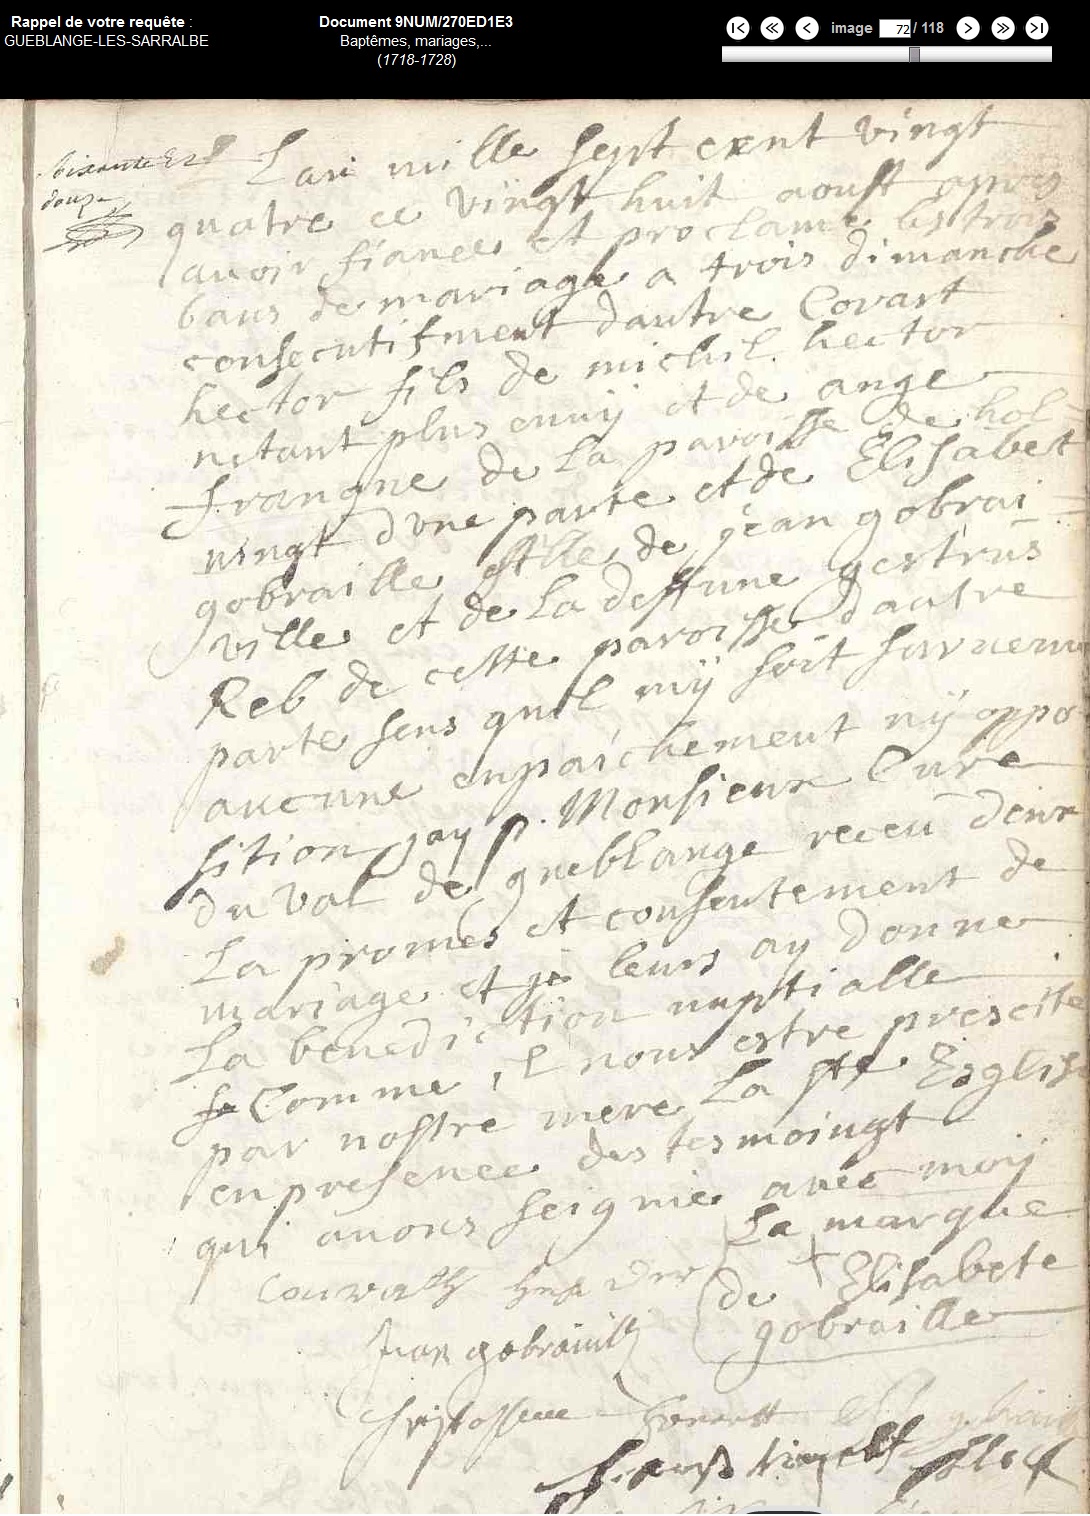 Rappel de votre requête :
GUEBLANGE-LES-SARRALBE
Document 9NUM/270ED1E3
Baptêmes, mariages,...
(1718-1728)
image 72 / 118
soixante Et
douze
Lan mille sept cent vingt
quatre ee vingt huit aoust apres
auoir fiancee et proclame les trois
bans de mariage a trois dimanche
consecutifment dautre Corart
hector fils de michil hector
nitant plus envij et de ange
frangne de la paroisse de hol
vingt dvne parte et de Elisabet
gobraille fille de jean gobrai
ville et de La deffune gertrus
Reb de cette paroisse dautre
parte sens quil nÿ soit survenu
aucune enpaichement nÿ oppo
sition jay p. Monsieur Cure
du val de gueblange receu deux
La promes et consentement de
mariage et je leurs ay donne
La benediction nuptialle
Comme il nous estre prescitte
par nostre mere La ste Esglise
en presence des tesmoingt
qui auons seignie avec moij
La marque
de Elisabete
gobraille
Jean gobrauill
Christoffeue